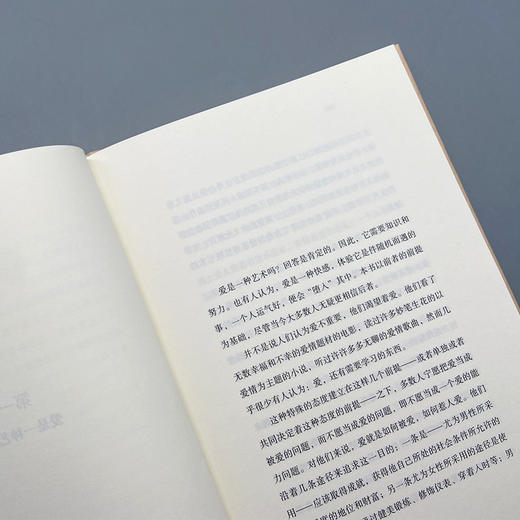 爱是一种艺术吗？回答是肯定的。因此，它需要知识和
努力。也有人认为，爱是一种快感，体验它是件随机而遇的
事，一个人运气好，便会“堕人”其中。本书以前者的前提
为基础，尽管当今大多数人无疑更相信后者。
并不是说人们认为爱不重要，他们渴望着爱。他们看了
无数幸福和不幸的爱情题材的电影，读过许多妙笔生花的以
爱情为主题的小说，听过许许多多无聊的爱情歌曲，然而几
乎很少有人认为：爱，还有需要学习的东西。
这种特殊的态度建立在这样几个前提——或者单独或者
共同决定着这种态度的前提——之下，多数人宁愿把爱当成
被爱的问题，而不愿当成爱的问题，即不愿当成一个爱的能
力问题。对他们来说，爱就是如何被爱，如何惹人爱。他们
沿着几条途径来追求这一目的：一条是——尤为男性所采
用——应该取得成就，获得他自己所处的社会条件所允许的
限度的地位和财富；另一条尤为女性所采用的途径是使
过健美锻炼，修饰仪表，穿着人时等；男